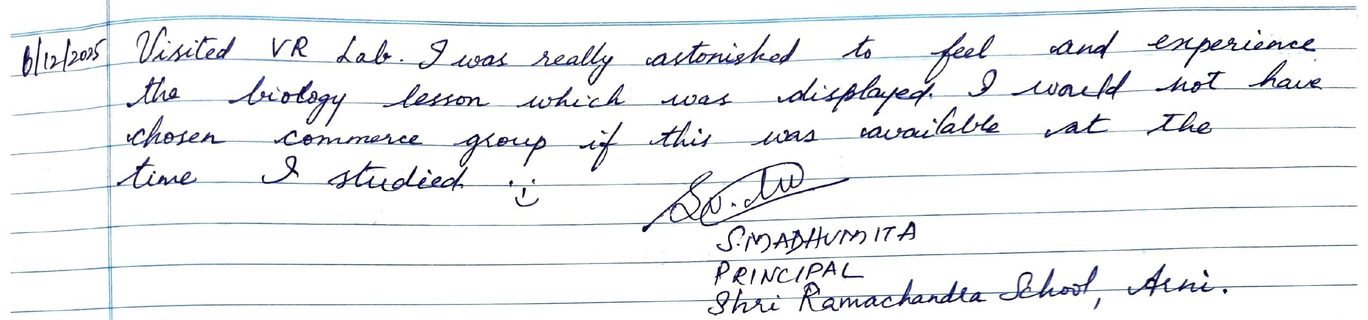 6/12/2025 Visited VR Lab. I was really astonished to feel and experience
the biology lesson which was displayed. I would not have
chosen commerce group if this was available at the
time I studied. :)
S.MADHUMITA
PRINCIPAL
Shri Ramachandra School, Arni.